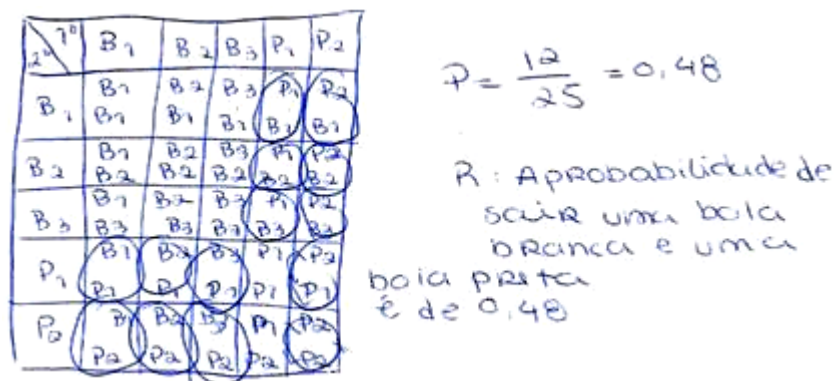 2º 1º B1 B2 B3 P1 P2
B1 B1 B2 B3 P1 P2
B1 B1 B1 B1 B1
B2 B1 B2 B3 P1 P2
B2 B2 B2 B2 B2
B3 B1 B2 B3 P1 P2
B3 B3 B3 B3 B3
P1 B1 B2 B3 P1 P2
P1 P1 P1 P1 P1
P2 B1 B2 B3 P1 P2
P2 P2 P2 P2 P2
P = 12/25 = 0,48
R: A probabilidade de
sair uma bola
branca e uma
bola preta
é de 0,48